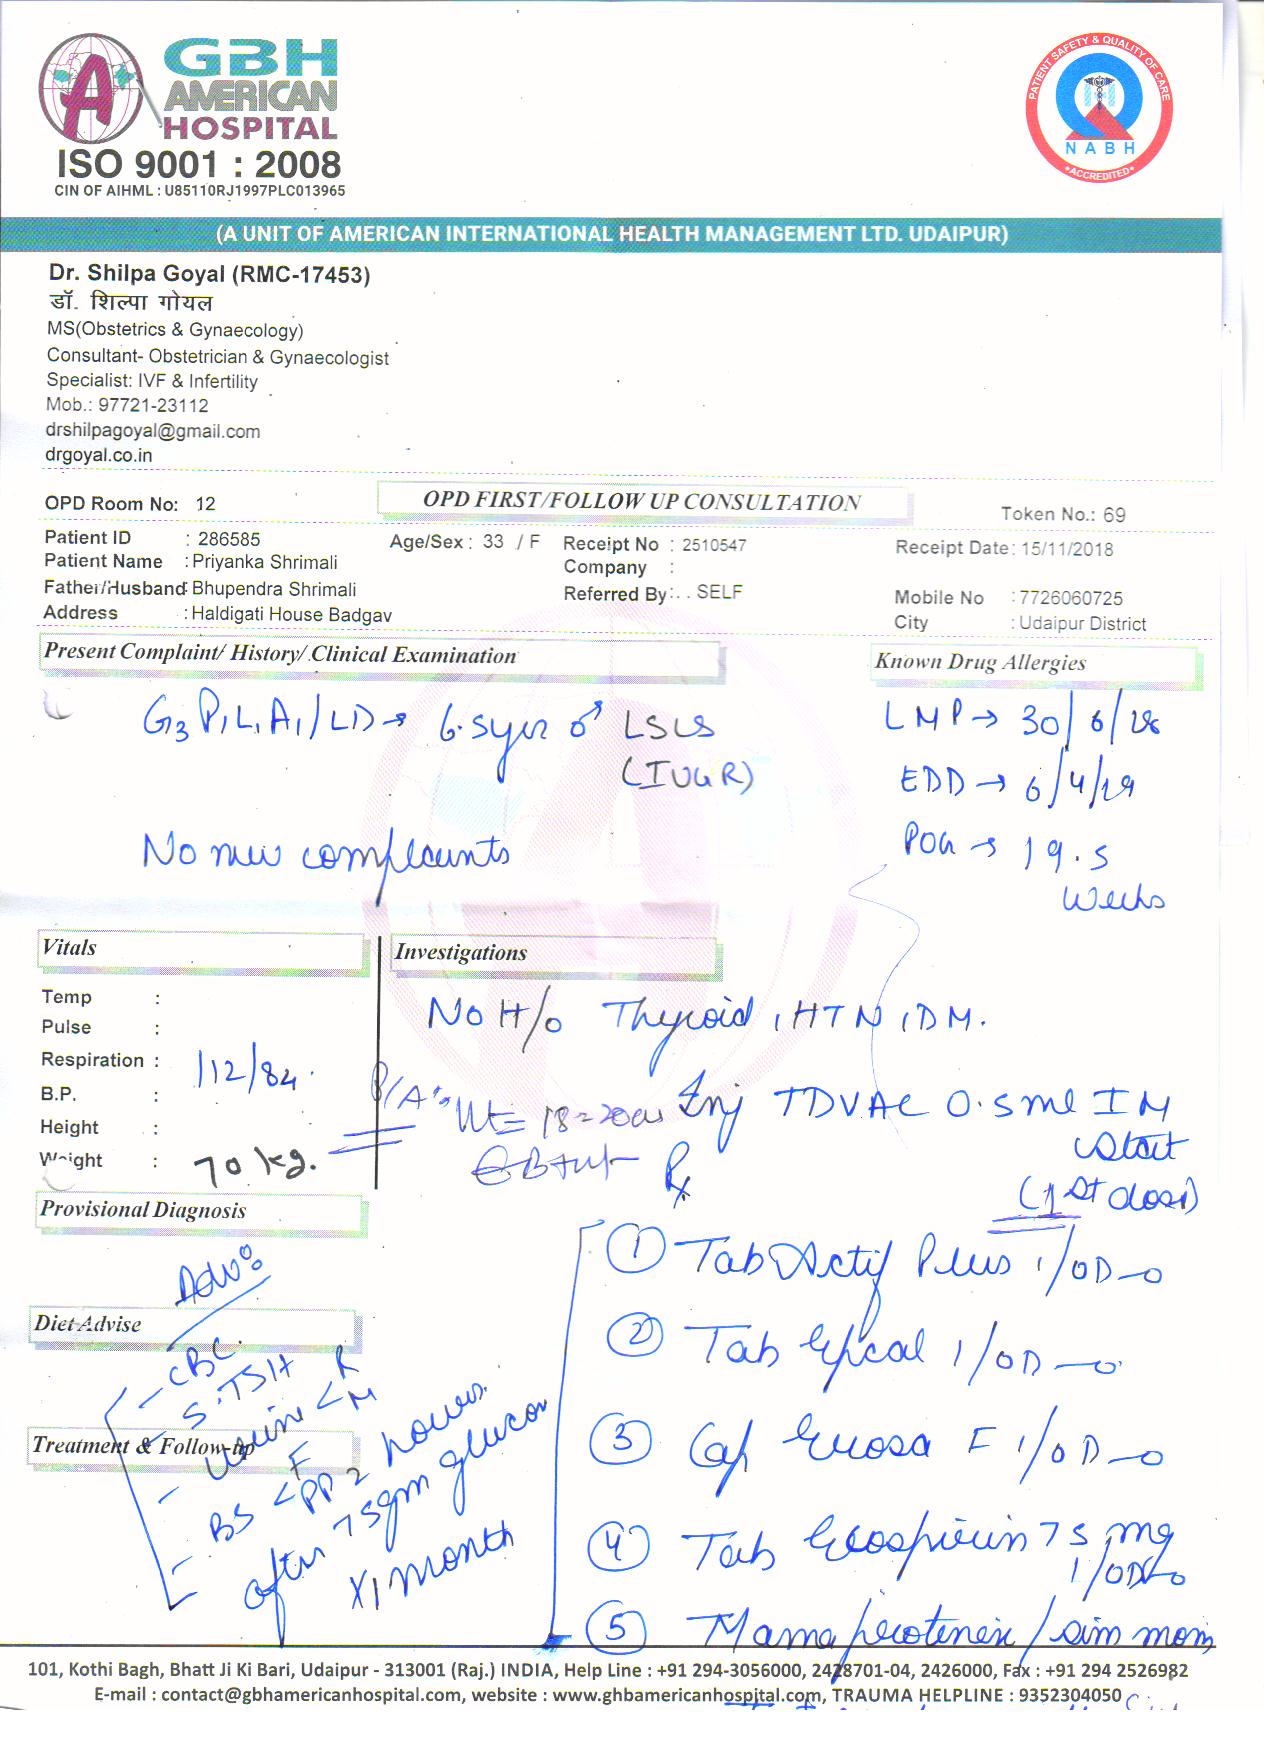 GBH
AMERICAN
HOSPITAL
ISO 9001 : 2008
CIN OF AIHML : U85110RJ1997PLC013965
PATIENT SAFETY & QUALITY OF CARE
NABH
ACCREDITED
(A UNIT OF AMERICAN INTERNATIONAL HEALTH MANAGEMENT LTD. UDAIPUR)
Dr. Shilpa Goyal (RMC-17453)
डॉ. शिल्पा गोयल
MS(Obstetrics & Gynaecology)
Consultant- Obstetrician & Gynaecologist
Specialist: IVF & Infertility
Mob.: 97721-23112
drshilpagoyal@gmail.com
drgoyal.co.in
OPD Room No: 12
OPD FIRST/FOLLOW UP CONSULTATION
Token No.: 69
Patient ID : 286585 Age/Sex : 33 / F Receipt No : 2510547 Receipt Date: 15/11/2018
Patient Name : Priyanka Shrimali Company :
Father/Husband: Bhupendra Shrimali Referred By:. . SELF Mobile No : 7726060725
Address : Haldigati House Badgav City : Udaipur District
Present Complaint/ History/ Clinical Examination
Known Drug Allergies
G3 P1 L1 A1 / LD → 6.5yr ♂ LSCS
(IUGR)
LMP → 30/6/18
EDD → 6/4/19
POG → 19.5
weeks
No new complaints
Vitals
Investigations
Temp :
Pulse :
Respiration :
B.P. : 112/84
Height :
Weight : 70 kg.
No H/o Thyroid, HTN, DM.
P/A:- Ut = 18-20cm
Inj TDVAC 0.5ml IM
Stat
(1st dose)
Rx
Provisional Diagnosis
Adv:
Diet Advise
- CBC
S.TSH
Treatment & Follow-up
- Urine < R
M
- BS < F
PP 2 hours
after 75gm glucon
X1 month
① Tab Actif Plus 1/OD
② Tab 1/OD
③ Cap F 1/OD
④ Tab Ecospirin 75 mg
1/OD
⑤ Mama protinex / sim mom
101, Kothi Bagh, Bhatt Ji Ki Bari, Udaipur - 313001 (Raj.) INDIA, Help Line : +91 294-3056000, 2428701-04, 2426000, Fax : +91 294 2526982
E-mail : contact@gbhamericanhospital.com, website : www.ghbamericanhospital.com, TRAUMA HELPLINE : 9352304050